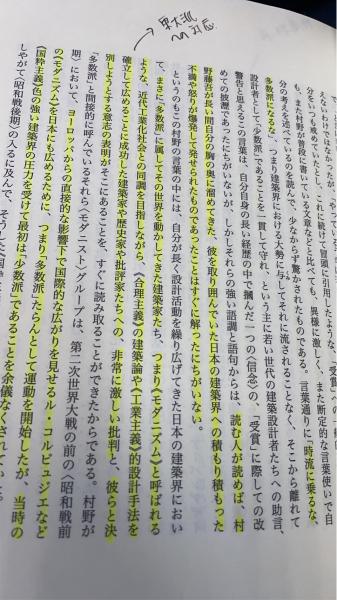 えないわけではなかったが、「やっている
分をいつも戒めていたとし、これに続けて冒頭に引用したような、「受賞」への一種の
も、また村野が普段に書いている文章などと比べても、異様に激しく、また断定的な言葉使いで自
分の考えを述べているのを読んで、少なからず驚かされたものである。言葉通りに「時流に乗るな、
多数派になるな」、つまり建築界における大勢に与してそれに流されることなく、そこから離れて
設計者として〝少数派〟であることを一貫して守れ、という主に若い世代の建築設計者たちへの助言、
警告と思えるこの言葉は、自分自身の長い経歴の中で摑んだ一つの〈信念〉の、〝受賞〟に際しての改
めての披瀝であったにちがいないが、しかしそれらの強い語調と語句からは、読む人が読めば、村
野藤吾が長い間自分の胸の奥に溜めてきた、彼を取り囲んでいた日本の建築界への積もり積もった
不満や怒りが爆発して発せられたものであったことはすぐに解ったにちがいない。
というのもこの村野の言葉の中には、自分が長く設計活動を繰り広げてきた日本の建築界におい
て、まさに〝多数派〟に属してその世界を動かしてきた建築家たち、つまり〈モダニズム〉と呼ばれる
ような、近代工業化社会との同調を目指しながら、〈合理主義〉の建築論や〈工業主義〉的設計手法を
確立して広めることに成功した建築家や歴史家や批評家たちへの、非常に激しい批判と、彼らと決
別しようとする意志の表明がそこにあることを、すぐに読み取ることができたからである。村野が
〝多数派〟と間接的に呼んでいるそれら〈モダニスト〉グループは、第二次世界大戦の前の〈昭和戦前
期〉において、ヨーロッパからの直接的な影響下で国際的な広がりを見せるル・コルビュジエなど
の〈モダニズム〉を日本にも広めるために、つまり〝多数派〟たらんとして運動を開始したが、当時の
国粋主義色の強い建築界の圧力を受けて最初は〝少数派〟であることを余儀なくされていた
しやがて〈昭和戦後期〉の入るに及んで、そうした